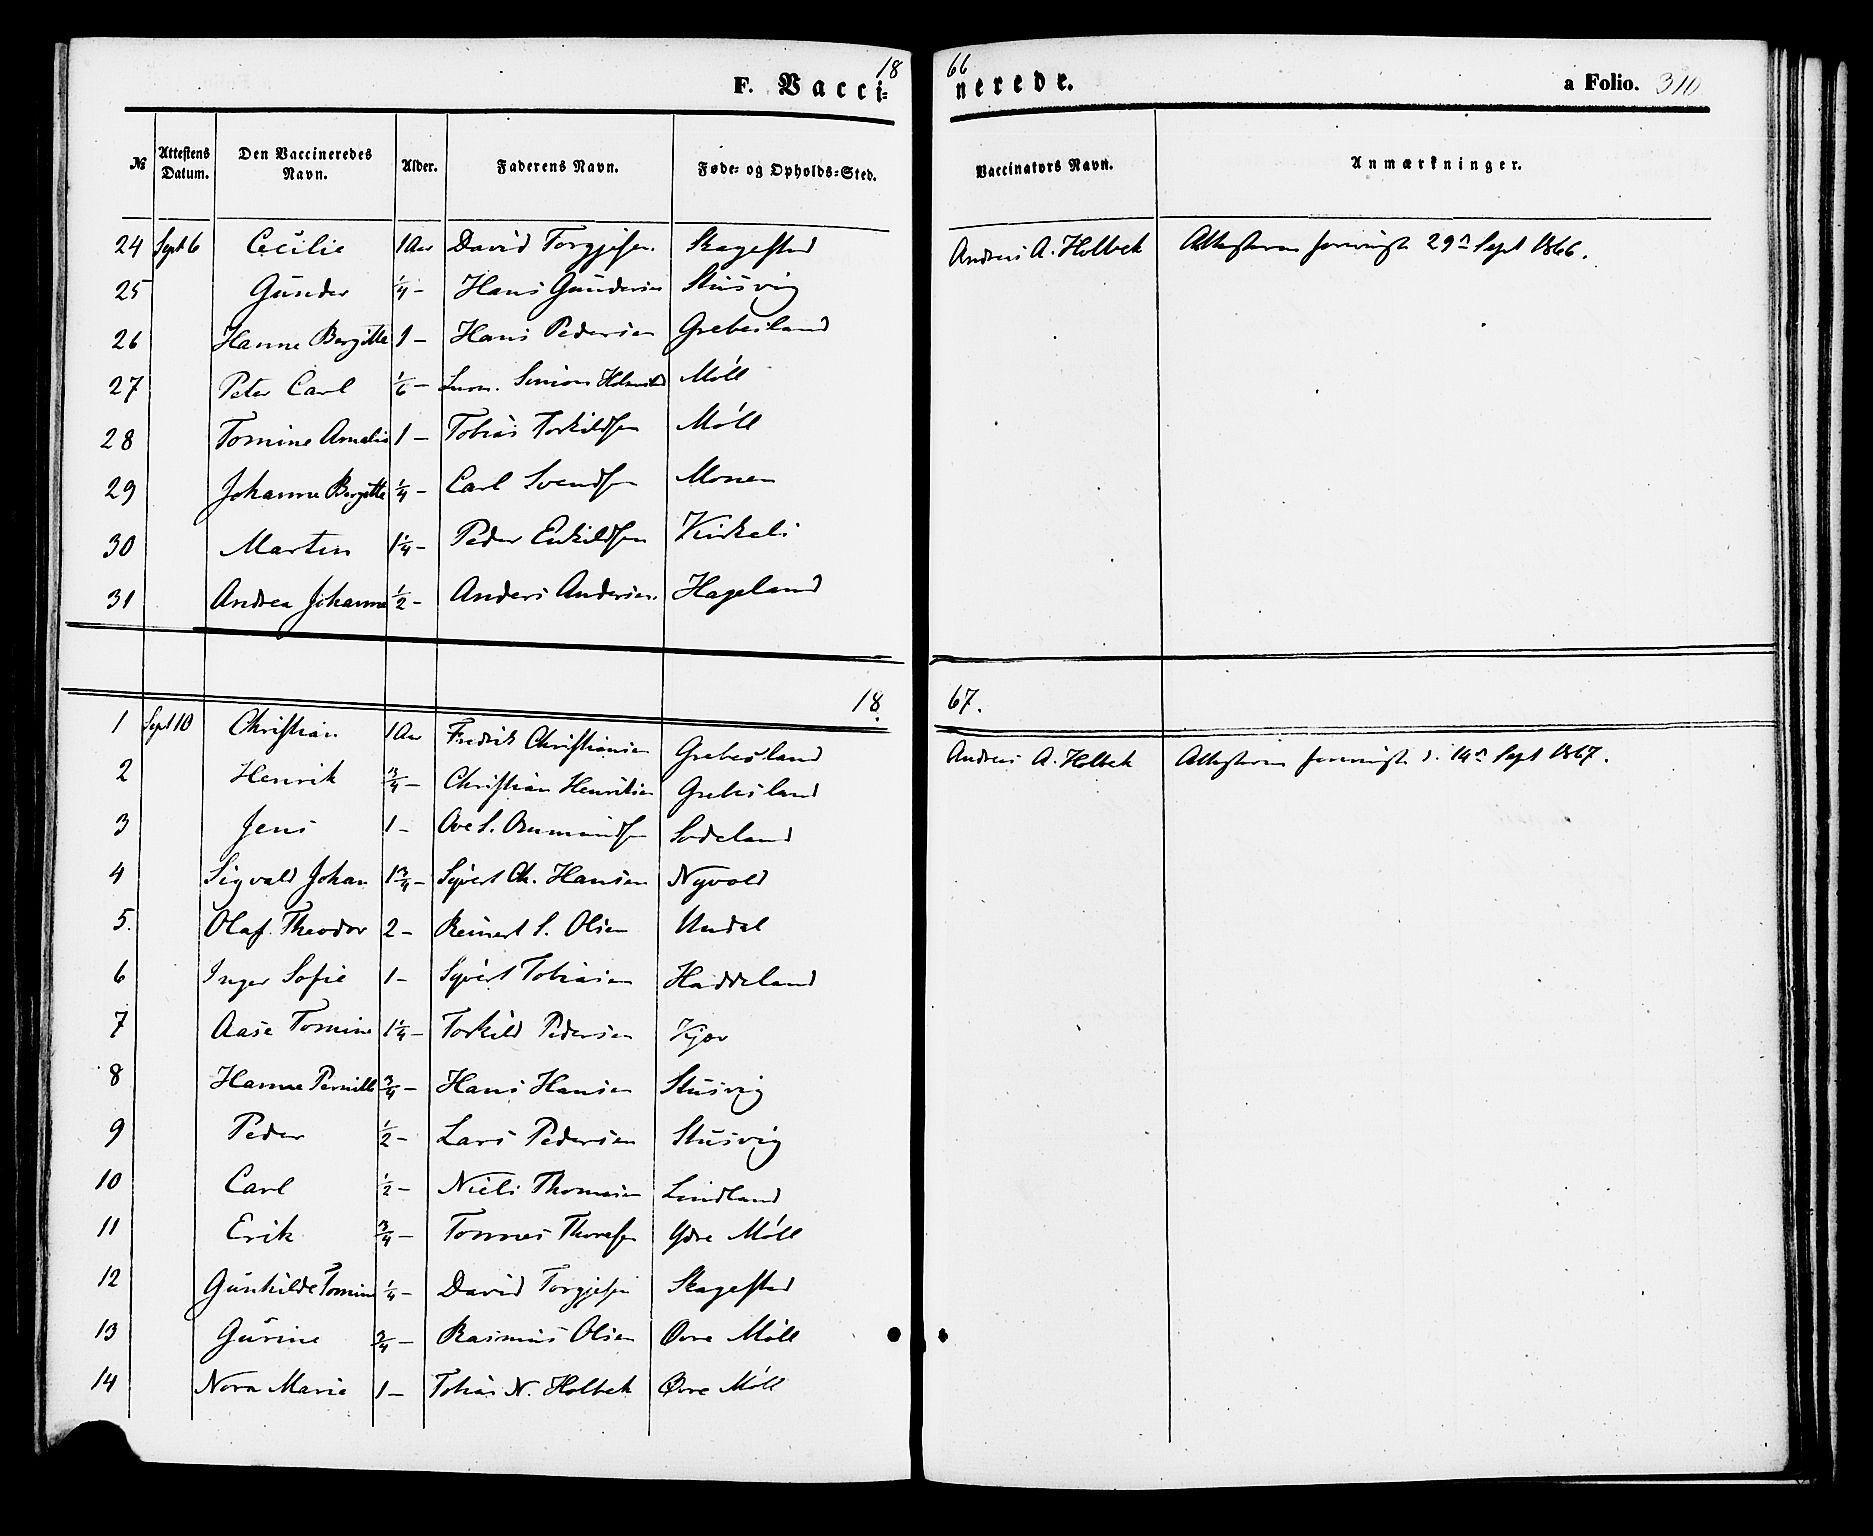 18 66
F. Vacci- nerede. a Folio. 310
№ Attestens Datum. Den Vaccineredes Navn. Alder. Faderens Navn. Føde- og Opholds-Sted. Vaccinators Navn. Anmærkninger.
24 Sept 6 Cecilie 1 Aar David Torgjesen. Skagestad Andreas A. Holbek Attesterne 29de Sept 1866.
25 Gunder ¼ - Hans Gundersen Stusvig
26 Hanne Bergitte 1 - Hans Pedersen Grebesland
27 Peter Carl 1/6 - Møll
28 Tomine Amalie 1 - Tobias Torkildsen Møll
29 Johanne Bergitte ¼ - Carl Svendsen Monen
30 Martin 1¼ - Peder Eskildsen Kirkeli
31 Andrea Johanne ½ - Anders Andersen. Hageland
18 67.
1 Sept 10 Christian 1 Aar Fredrik Christiansen Grebesland Andreas A. Holbek Attesterne d. 14de Sept 1867.
2 Henrik ¾ - Christian Henriksen Grebesland
3 Jens 1 - Ave S. Asmundsen Sodeland
4 Sigvald Johan 1¾ - Syvert Ch. Hansen Nyvold
5. Olaf Theodor 2 - Reinert S. Olsen Undal
6 Inger Sofie 1 - Syvert Tobiasen Haddeland
7 Aase Tomine 1¼ - Torkild Pedersen Kjør
8 Hanne Pernille ¾ - Hans Hansen Stusvig
9 Peder ½ - Lars Pedersen Stusvig
10 Carl ½ - Niels Thomesen Lindland
11 Erik ¾ - Tønnes Thoresen Ydre Møll
12 Gunhilde Tomine ¼ - David Torgjesen Skagestad
13 Gurine ¾ - Rasmus Olsen Øvre Møll
14 Nora Marie 1 - Tobias N. Holbek Øvre Møll